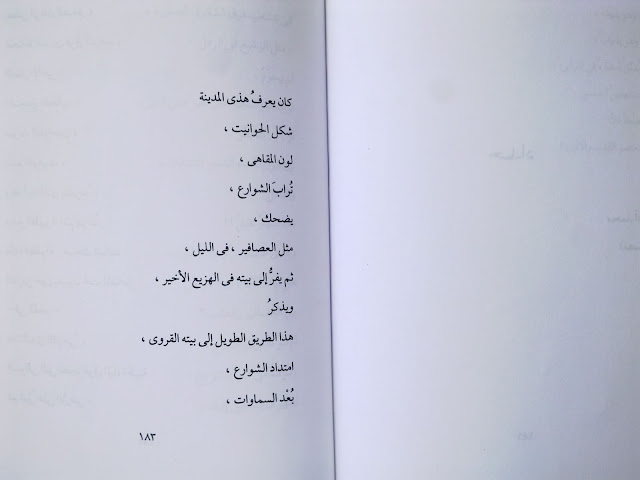 كان يعرفُ هذى المدينة
شكل الحوانيت ،
لون المقاهى ،
تُرابَ الشوارع ،
يضحك ،
مثل العصافير ، فى الليل ،
ثم يفرُّ إلى بيته فى الهزيع الأخير ،
ويذكرُ
هذا الطريق الطويل إلى بيته القروى ،
امتداد الشوارع ،
بُعْد السماوات ،
١٨٣